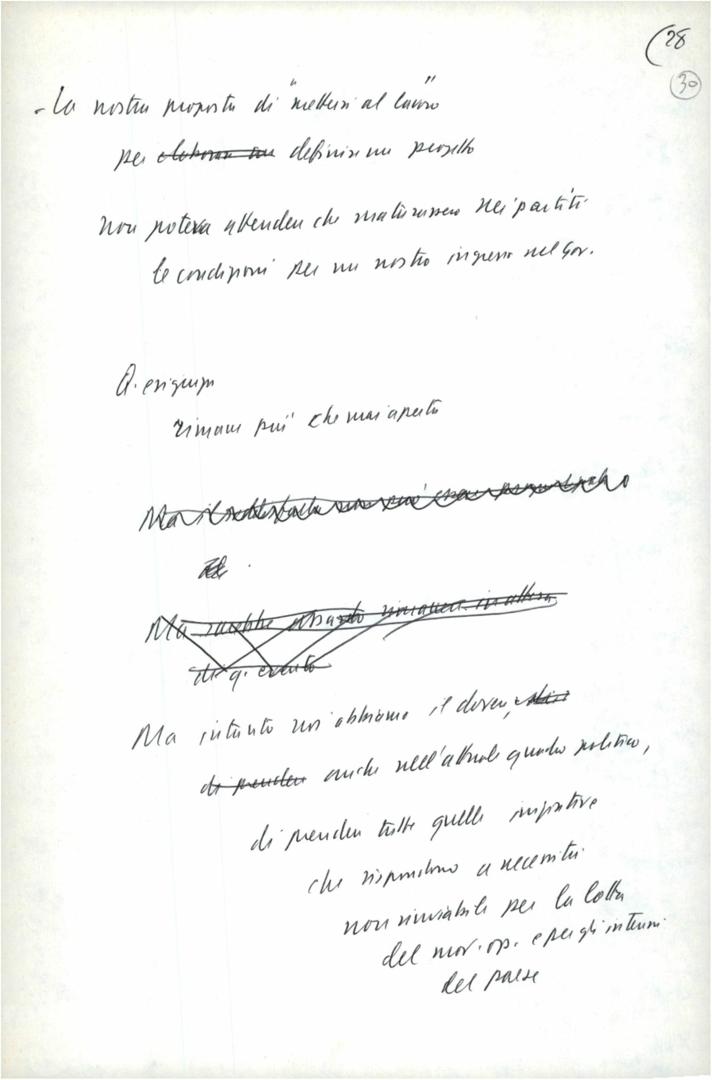 (28
30
- La nostra proposta di "mettersi al lavoro"
per elaborare un definire un progetto
non poteva attendere che maturassero nei partiti
le condizioni per un nostro ingresso nel gov.
Q. esigenza
rimane più che mai aperta
Ma
Ma sarebbe assurdo rimanere in attesa
di q. evento
Ma intanto noi abbiamo il dovere,
di prendere anche nell'attuale quadro politico,
di prendere tutte quelle iniziative
che rispondono a necessità
non rinviabili per la lotta
del mov. op. e per gli interessi
del paese